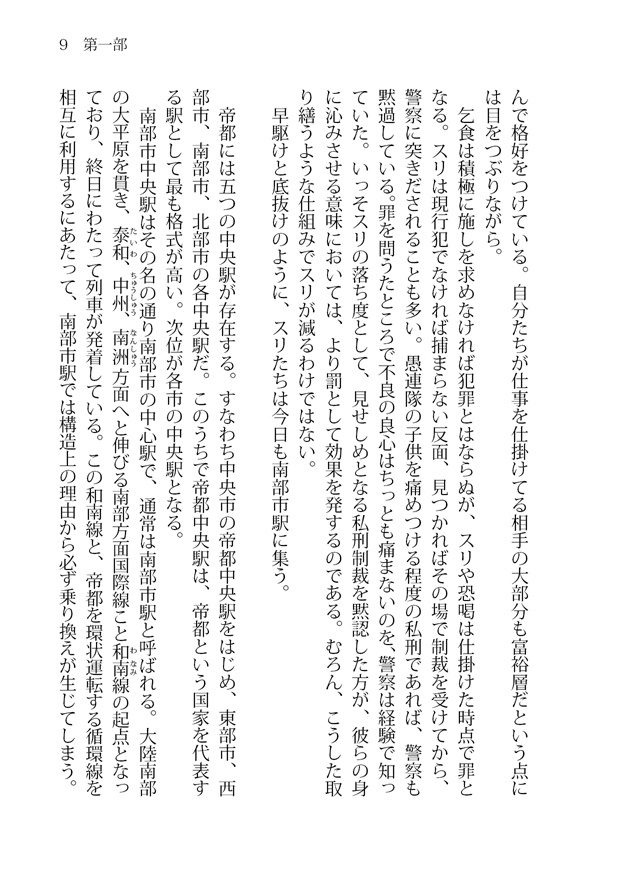 9　第一部
んで格好をつけている。自分たちが仕事を仕掛けてる相手の大部分も富裕層だという点に
は目をつぶりながら。
　乞食は積極に施しを求めなければ犯罪とはならぬが、スリや恐喝は仕掛けた時点で罪と
なる。スリは現行犯でなければ捕まらない反面、見つかればその場で制裁を受けてから、
警察に突きだされることも多い。愚連隊の子供を痛めつける程度の私刑であれば、警察も
黙過している。罪を問うたところで不良の良心はちっとも痛まないのを、警察は経験で知っ
ていた。いっそスリの落ち度として、見せしめとなる私刑制裁を黙認した方が、彼らの身
に沁みさせる意味においては、より罰として効果を発するのである。むろん、こうした取
り繕うような仕組みでスリが減るわけではない。
　早駆けと底抜けのように、スリたちは今日も南部市駅に集う。
　帝都には五つの中央駅が存在する。すなわち中央市の帝都中央駅をはじめ、東部市、西
部市、南部市、北部市の各中央駅だ。このうちで帝都中央駅は、帝都という国家を代表す
る駅として最も格式が高い。次位が各市の中央駅となる。
　南部市中央駅はその名の通り南部市の中心駅で、通常は南部市駅と呼ばれる。大陸南部
の大平原を貫き、泰和、中州、南洲方面へと伸びる南部方面国際線こと和南線の起点となっ
たいわ　ちゅうしゅう　なんしゅう　わなみ
ており、終日にわたって列車が発着している。この和南線と、帝都を環状運転する循環線を
相互に利用するにあたって、南部市駅では構造上の理由から必ず乗り換えが生じてしまう。